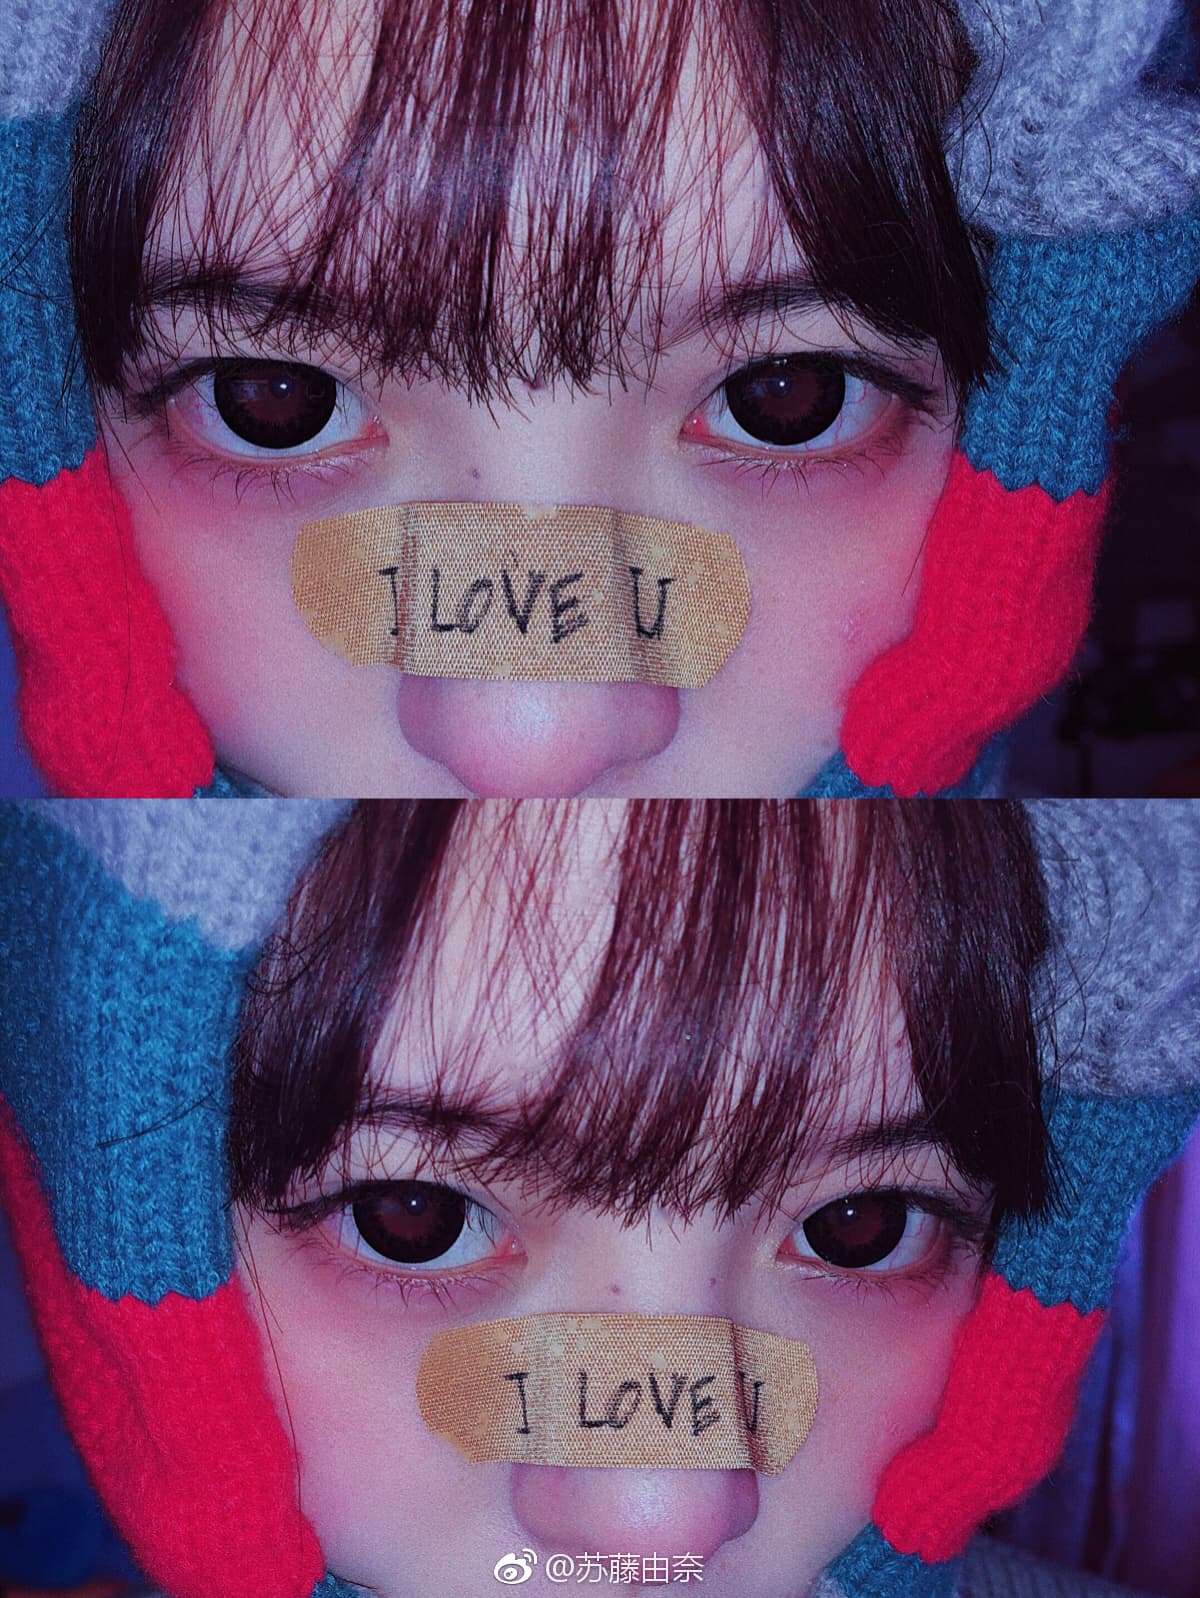 I LOVE U
I LOVE U
@苏藤由奈